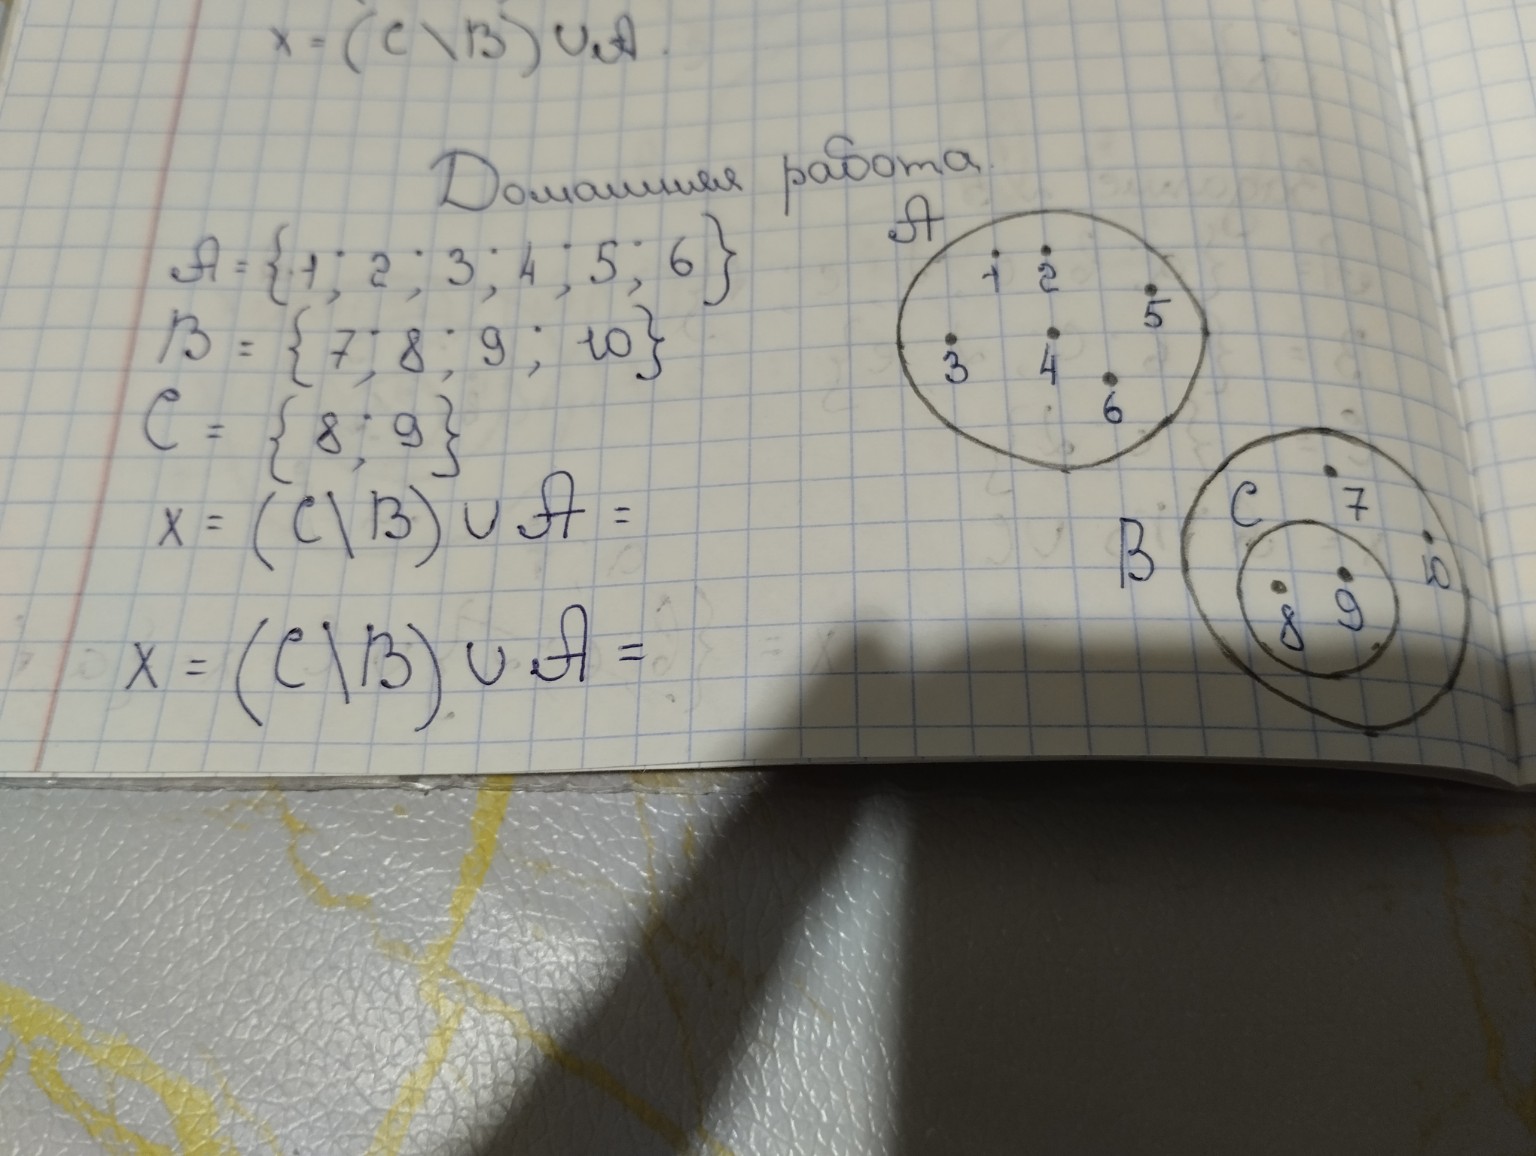 x = (C \ B) ∪ A.
Домашняя работа.
A = {1; 2; 3; 4; 5; 6}
B = {7; 8; 9; 10}
C = {8; 9}
x = (C \ B) ∪ A =
x = (C \ B) ∪ A =
A
1 2
5
3 4
6
C 7
B
10
8 9